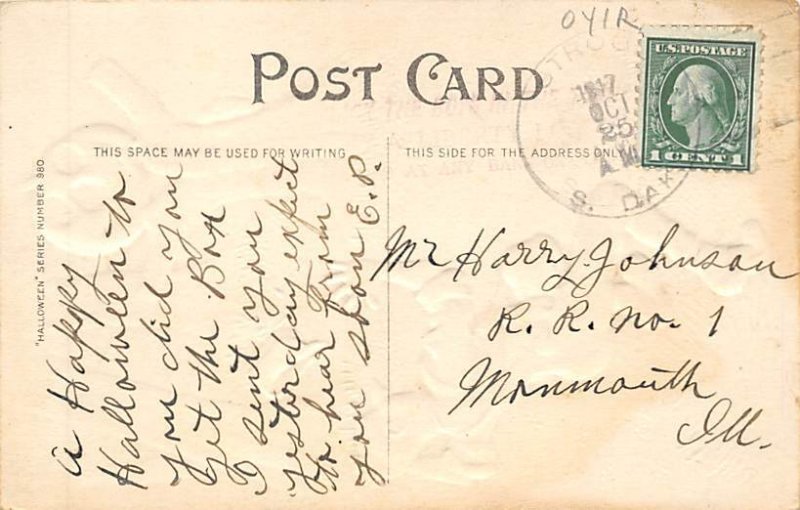 OYIR
POST CARD
U.S. POSTAGE
1 CENT 1
1917
OCT
25
A.M.
S. DAK
THIS SPACE MAY BE USED FOR WRITING
THIS SIDE FOR THE ADDRESS ONLY
"HALLOWEEN" SERIES NUMBER 980.
A Happy
Halloween to
you did you
get the Box
I sent you
yesterday expect
to hear from
you soon E.P.
Mr Harry Johnson
R. R. no. 1
Monmouth
Ill.